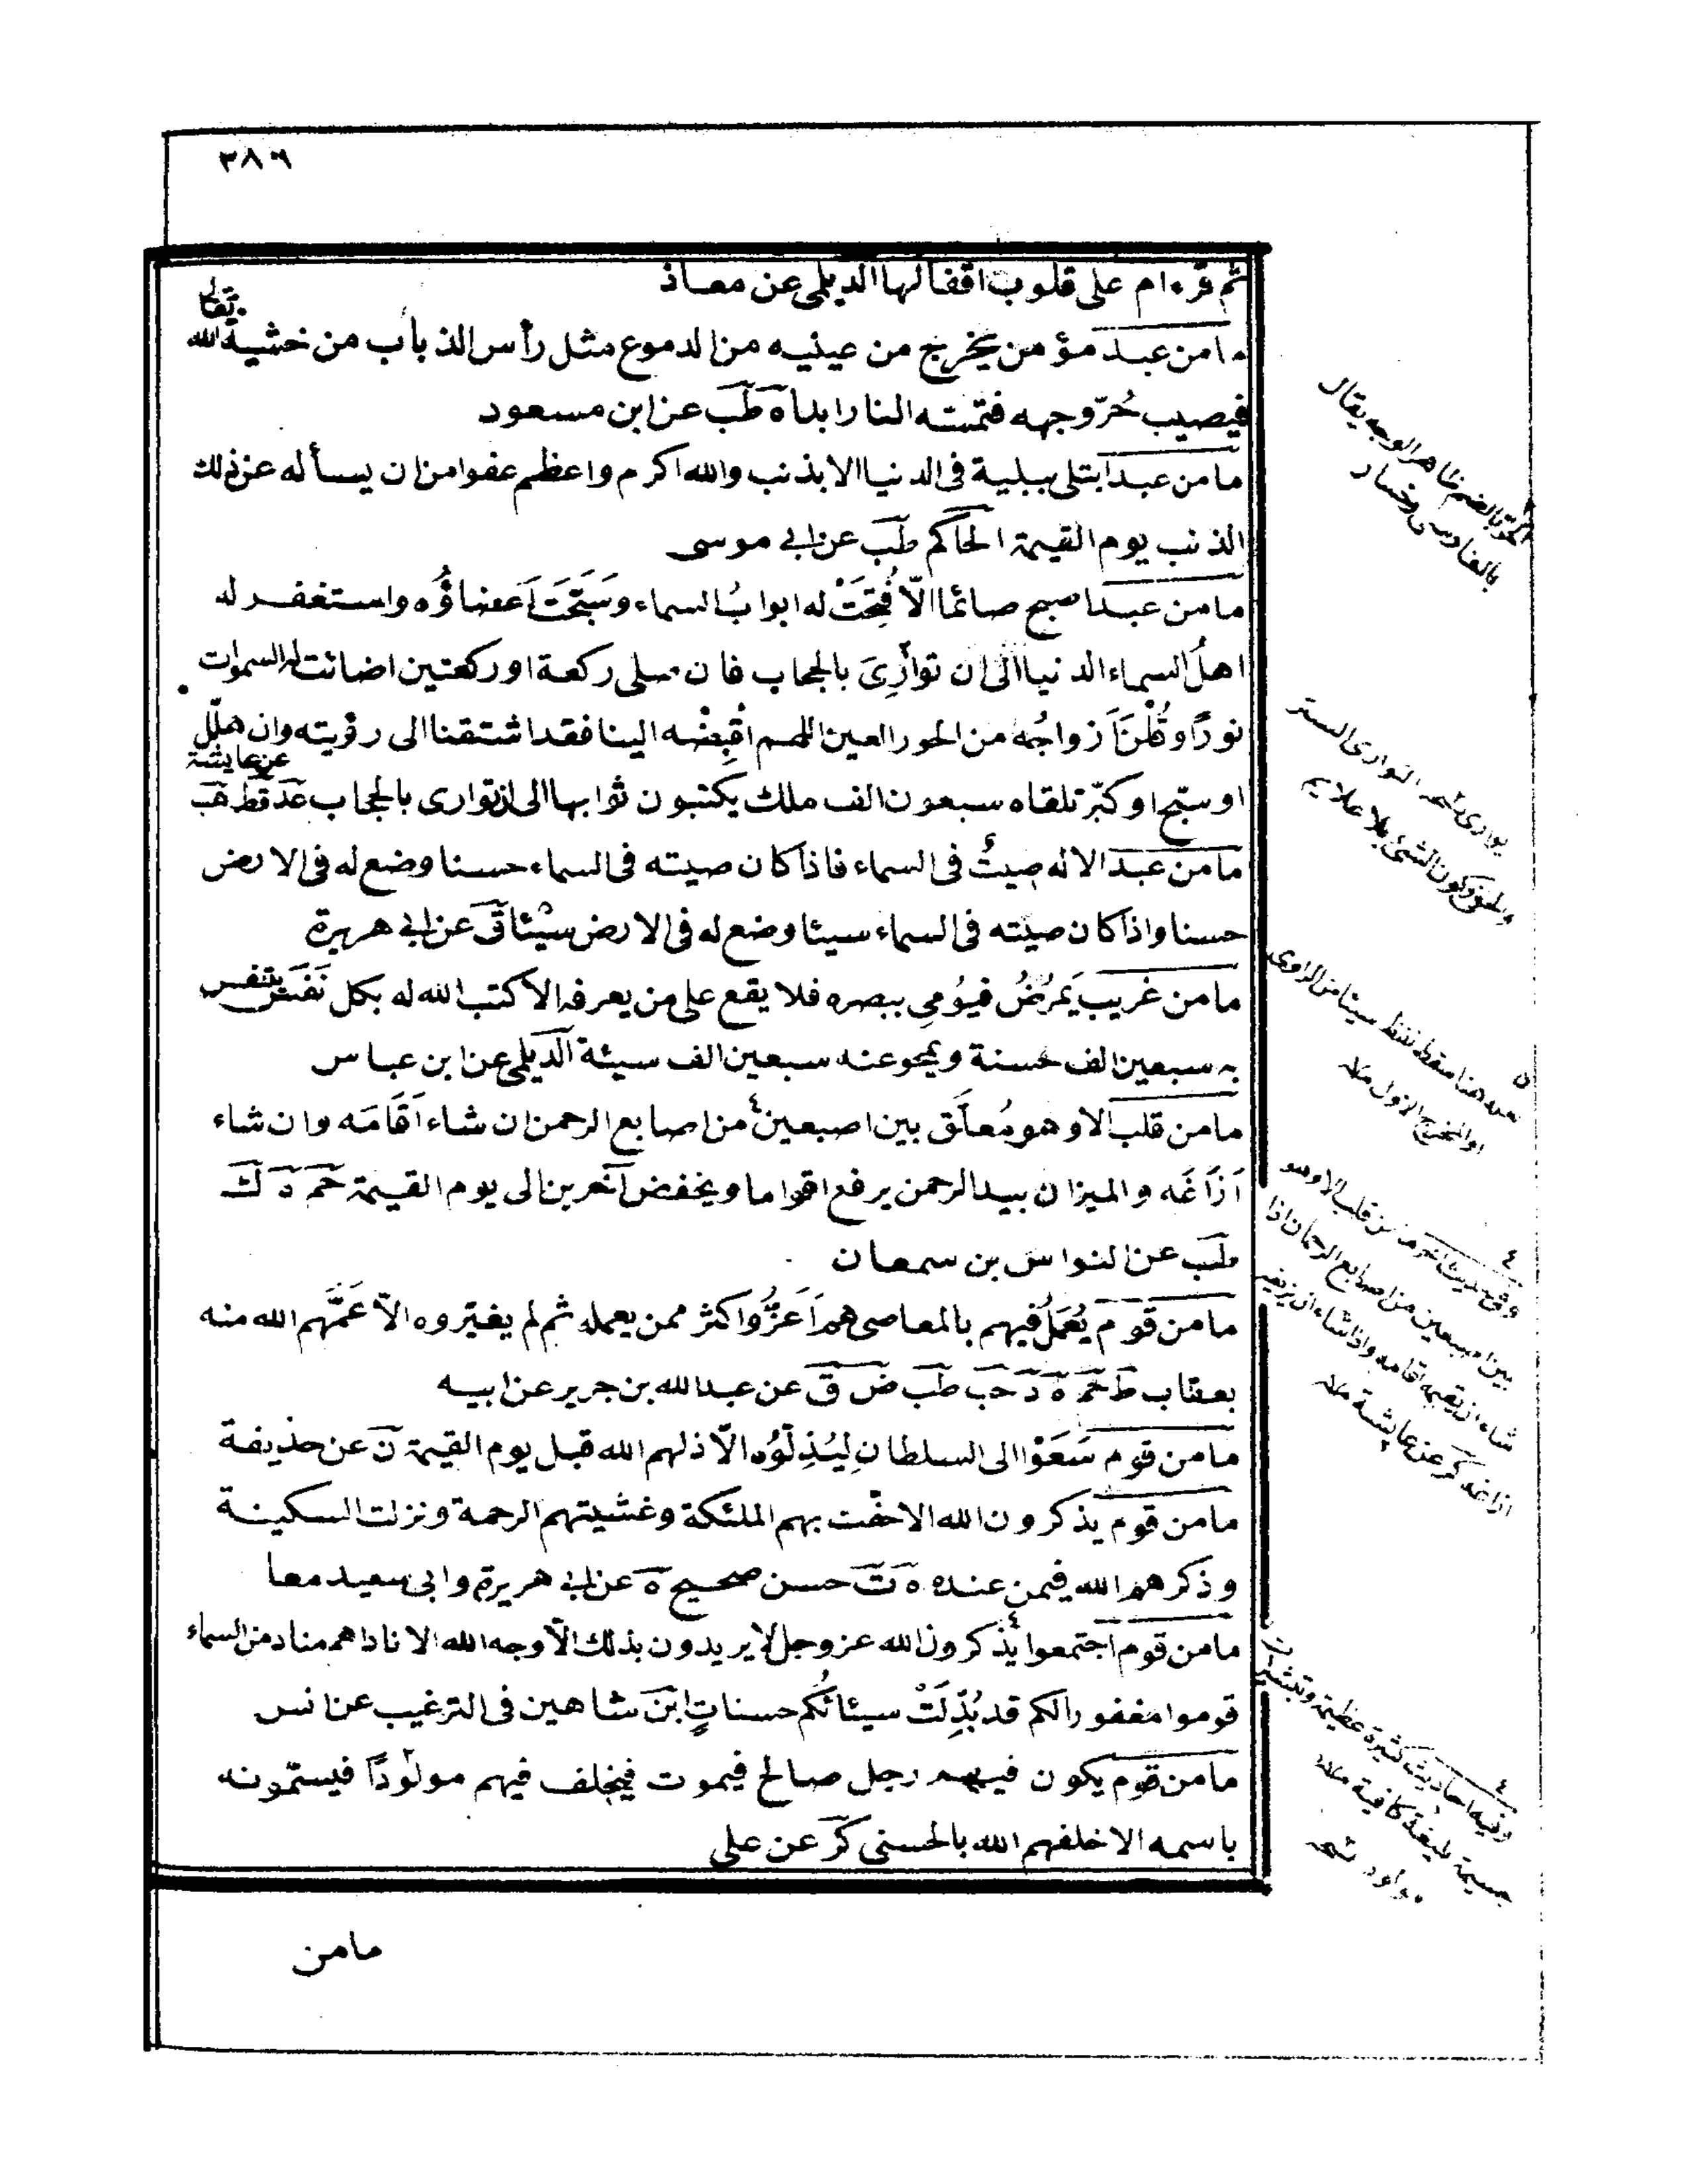 ٣٨٦
ثم قرء ام على قلوب اقفالها الديلمى عن معاذ
ما من عبد مؤمن يخرج من عينيه من الدموع مثل رأس الذباب من خشية الله تعالى
فيصيب حُرّ وجهه فتمسّه النار ابدا ه طب عن ابن مسعود
ما من عبد ابتلى ببلية فى الدنيا الا بذنب والله اكرم واعظم عفوا من ان يسأله عن ذلك
الذنب يوم القيمة الحاكم طب عن ابى موسى
ما من عبد اصبح صائما الّا فُتِحَتْ له ابوابُ السماء وسَبَّحَتْ اَعضاؤُه واستغفر له
اهلُ السماء الدنيا الى ان توارِىَ بالحجاب فان صلى ركعة او ركعتين اضائت له السموات
نورًا وقُلْنَ اَزواجُه من الحور العين اللهم اقْبِضْه الينا فقد اشتقنا الى رؤيته وان هلّل
او سبّح او كبّر تلقاه سبعون الف ملك يكتبون ثوابها الى ان توارى بالحجاب عد قط هب عن عايشة
ما من عبد الا له صِيتٌ فى السماء فاذا كان صيته فى السماء حسنا وضع له فى الارض
حسنا واذا كان صيته فى السماء سيئا وضع له فى الارض سيّئا ق عن ابى هريرة
ما من غريب يَمرُضُ فيُومِى ببصره فلا يقع على من يعرفه الا كتب الله له بكل نَفَسٍ يتنفس
به سبعين الف حسنة ويمحو عنه سبعين الف سيئة الديلمى عن ابن عباس
ما من قلب الا وهو مُعلَّق بين اصبعين من اصابع الرحمن ان شاء اَقَامَه وان شاء
اَزَاغَه والميزان بيد الرحمن يرفع اقواما ويخفض آخرين الى يوم القيمة حم ه ك
طب عن النواس بن سمعان
ما من قوم يُعْمَلُ فيهم بالمعاصى هم اَعَزُّ واكثر ممن يعمله ثم لم يغيّروه الاّ عَمَّهم الله منه
بعقاب ط حم ه د حب طب ض ق عن عبد الله بن جرير عن ابيه
ما من قوم سَعَوْا الى السلطان لِيُذِلّوُه الاّ ذلهم الله قبل يوم القيمة ن عن حذيفة
ما من قوم يذكرون الله الا حفّت بهم الملئكة وغشيتهم الرحمة ونزلت السكينة
وذكرهم الله فيمن عنده ه ت حسن صحيح ه عن ابى هريرة وابى سعيد معا
ما من قوم اجتمعوا يذكرون الله عز وجل لا يريدون بذلك الاّ وجه الله الا ناداهم مناد من السماء
قوموا مغفورا لكم قد بُدِّلَتْ سيئاتُكم حسناتٍ ابن شاهين فى الترغيب عن انس
ما من قوم يكون فيهم رجل صالح فيموت فيخلف فيهم مولودًا فيسمّونه
باسمه الا خلفهم الله بالحسنى كر عن على
ما من
بالضم ظاهر الوجه يقال
بالفارسى رخسار
التوارى الستر
بعده هنا سقط لفظ سيئا من الراوى
او المخرج الاول منه
وفى حديث آخر ما من قلب الا وهو
بين اصبعين من اصابع الرحمان اذا
شاء ان يقيمه اقامه واذا شاء ان يزيغه
ازاغه كر عن عايشة منه
وفيه احاديث كثيرة عظيمة وتبشيرات
جسيمة بليغة كافية منه